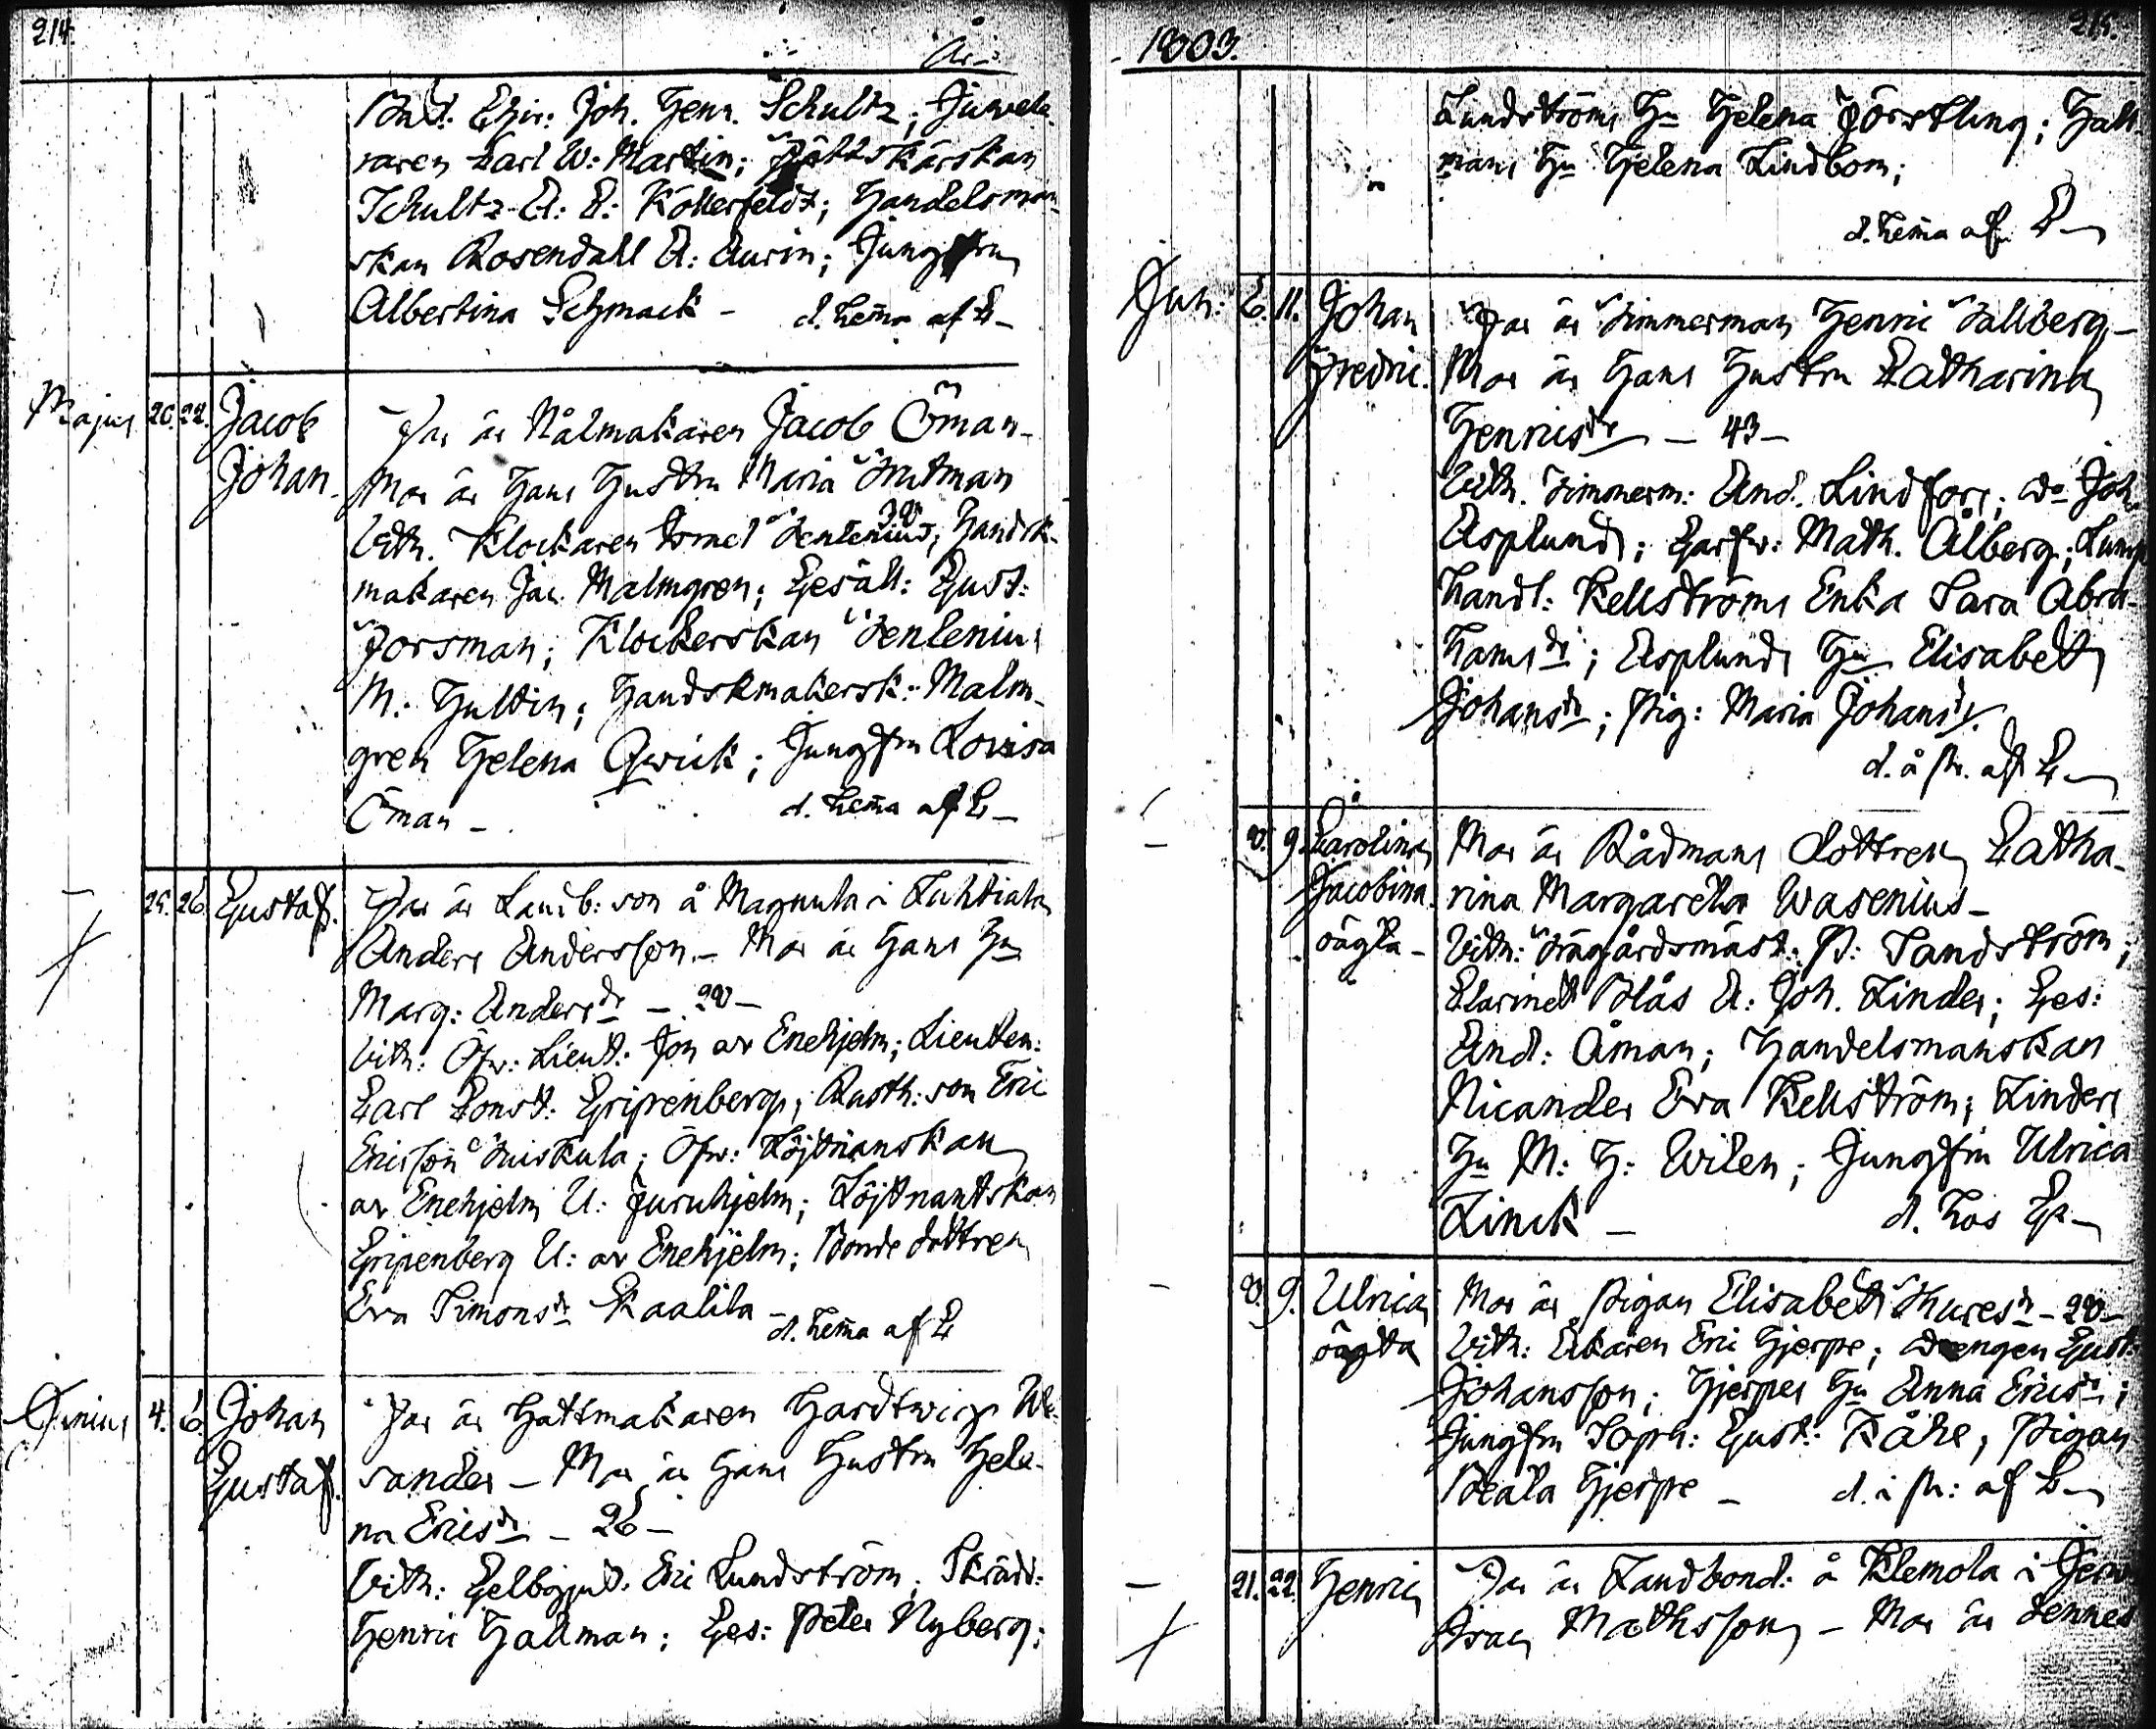 214.
År
Bat: Chir: Joh. Henr. Schultz; Juvele-
raren Carl W: Martin; Fältskärskan
Schultz A: C: Köllerfeldt; Handelsman-
skan Rosendahl A: Aurin; Jungfru
Albertina Schmack – d. hema af C–
Majus 20. 22. Jacob Johan.
Far är Nålmakaren Jacob Öman–
Mor är Hans Hustru Maria Trutman
39
Vitn. Klockaren Ismel Tenlenius; Handsk-
makaren Jac. Malmgren; Gesäll: Gust:
Forsman; Klockerskan Tenlenius
M: Hultin; Handskmakersk: Malm-
gren Helena Qwick; Jungfru Lovisa
Öman – d. hema af C–
25. 26. Gustaf.
Far är Landb: son å Magnula i Luhtiala
Anders Andersson. – Mor är Hans Hu
Marg: Andersdr – 28 –
Vitn: Öfv: Lieut: Jon av Enehjelm; Lieuten:
Carl Const: Gripenberg; Rusth: son Eric
Ericsson Tuiskula; Öfv: Löjtnanskan
av Enehjelm U: Furuhjelm; Löjtnantskan
Gripenberg U: av Enehjelm; Bonde dottren
Eva Simonsdr Kaalila –
d. hema af C
Junius 4. 6. Johan Gustaf.
Far är Hattmakaren Hardtwig We-
sander – Mor är Hans Hustru Hele-
na Ericsdr – 26 –
Vitn: Gelbgjut. Eric Lundström; Skrädd:
Henric Hallman; Ges: Peter Nyberg;
1803.
215.
Lundströms Hu Helena Förstling; Hall-
mans Hu Helena Lindbom;
d. hema af C–
Jun: 6. 11. Johan Fredric.
Far är Timmerman Henric Tallberg –
Mor är Hans Hustru Catharina
Henricsdr – 43 –
Vitn. Timmerm: And. Lindfors; do Joh
Asplund; Garfv: Math. Ålberg; Lump
handl: Kellströms Enka Sara Abra-
hamsdr; Asplunds Hu Elisabeth
Johansdr; Pig: Maria Johansdr.
d. å pr. af C–
– 8. 9. Carolina Jacobina. oägta –
Mor är Rådmans dottren Catha-
rina Margareta Wasenius –
Vitn: Trägårdsmäst: P: Sandström;
Clarinett Blås A: Joh. Linder; Ges:
And: Åman; Handelsmanskan
Nicander Eva Kellström; Linders
Hu M: H: Wilen; Jungfru Ulrica
Linck – d. hos Gr–
– 8. 9. Ulrica oägta
Mor är Pigan Elisabeth Thuresdr – 28 –
Vitn: Åkaren Eric Hjerpe; drengen Gust:
Johansson; Hjerpes Hu Anna Ericsdr;
Jungfru Soph: Gust: Kåhe; Pigan
Beata Hjerpe – d. i pr: af C–
– 21. 22. Henric
Far är Landbond: å Klemola i
Israc Mathsson – Mor är dennes